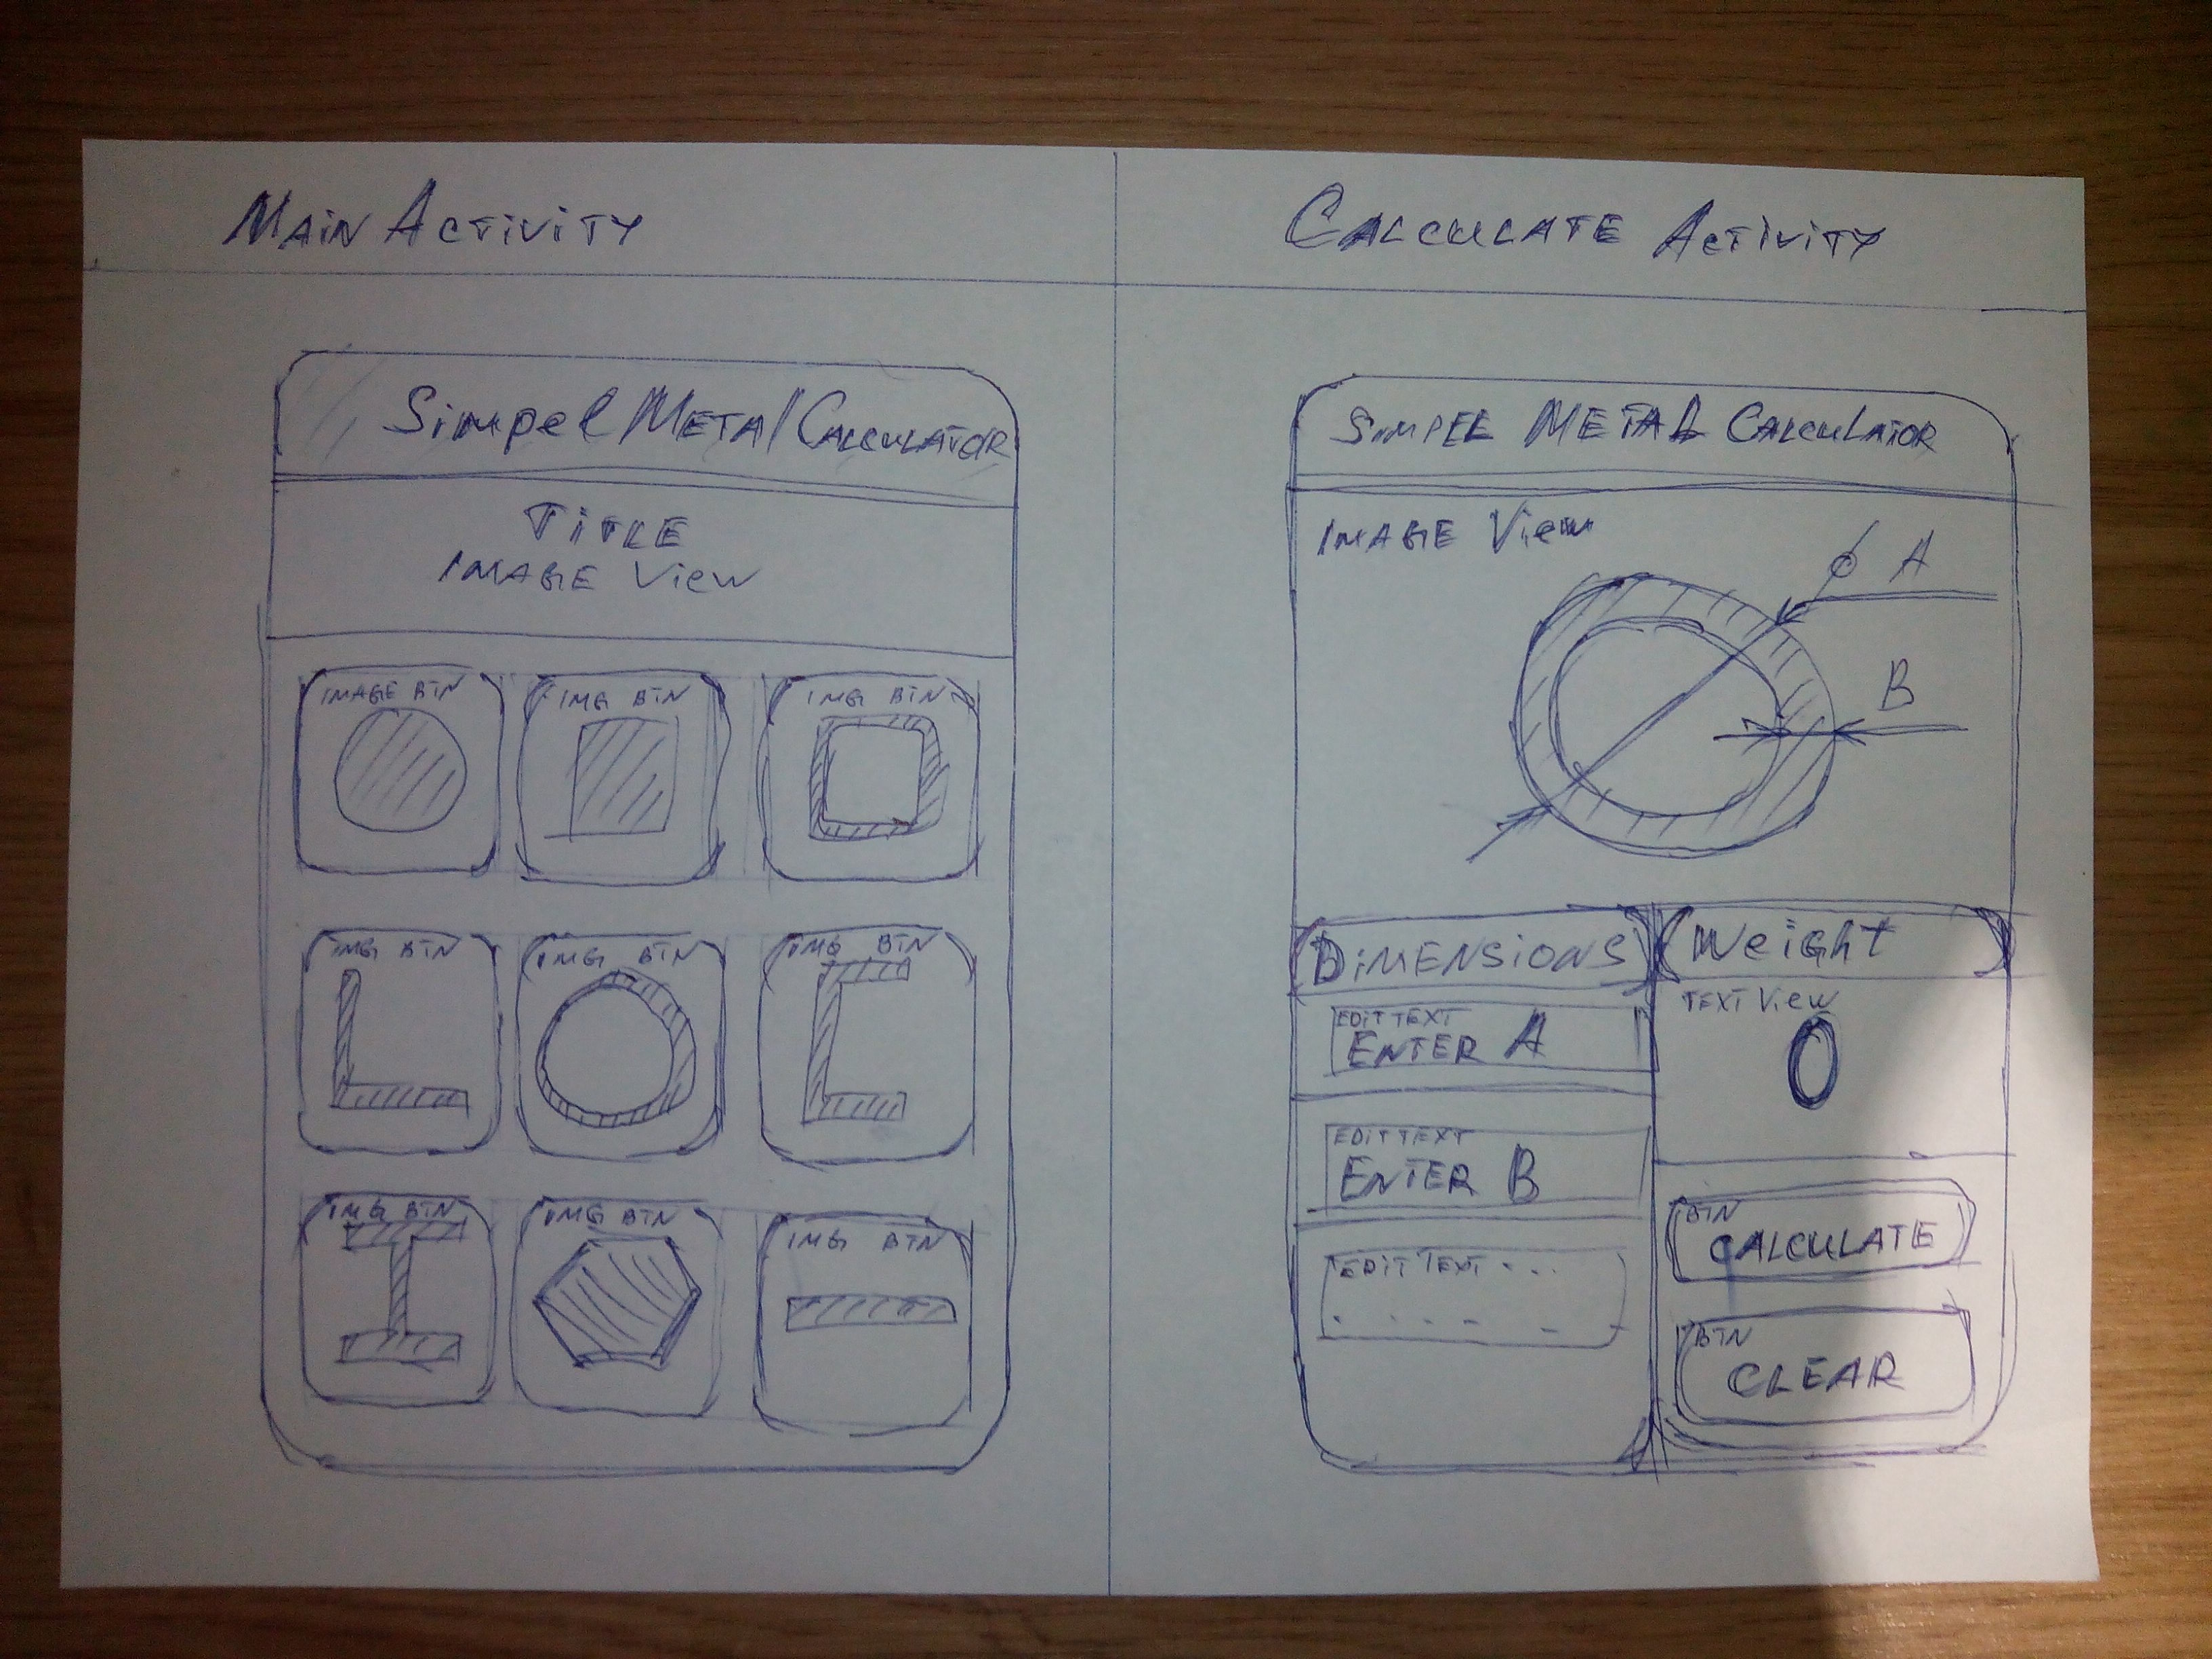 Main Activity
Simpel Metal Calculator
TITLE
IMAGE View
IMAGE BTN
IMG BTN
IMG BTN
IMG BTN
IMG BTN
IMG BTN
IMG BTN
IMG BTN
IMG BTN
CALCULATE Activity
SIMPEL METAL CALCULATOR
IMAGE View
ϕ A
B
DIMENSIONS
EDIT TEXT
ENTER A
EDIT TEXT
ENTER B
EDIT TEXT ...
Weight
TEXT View
0
BTN
CALCULATE
BTN
CLEAR